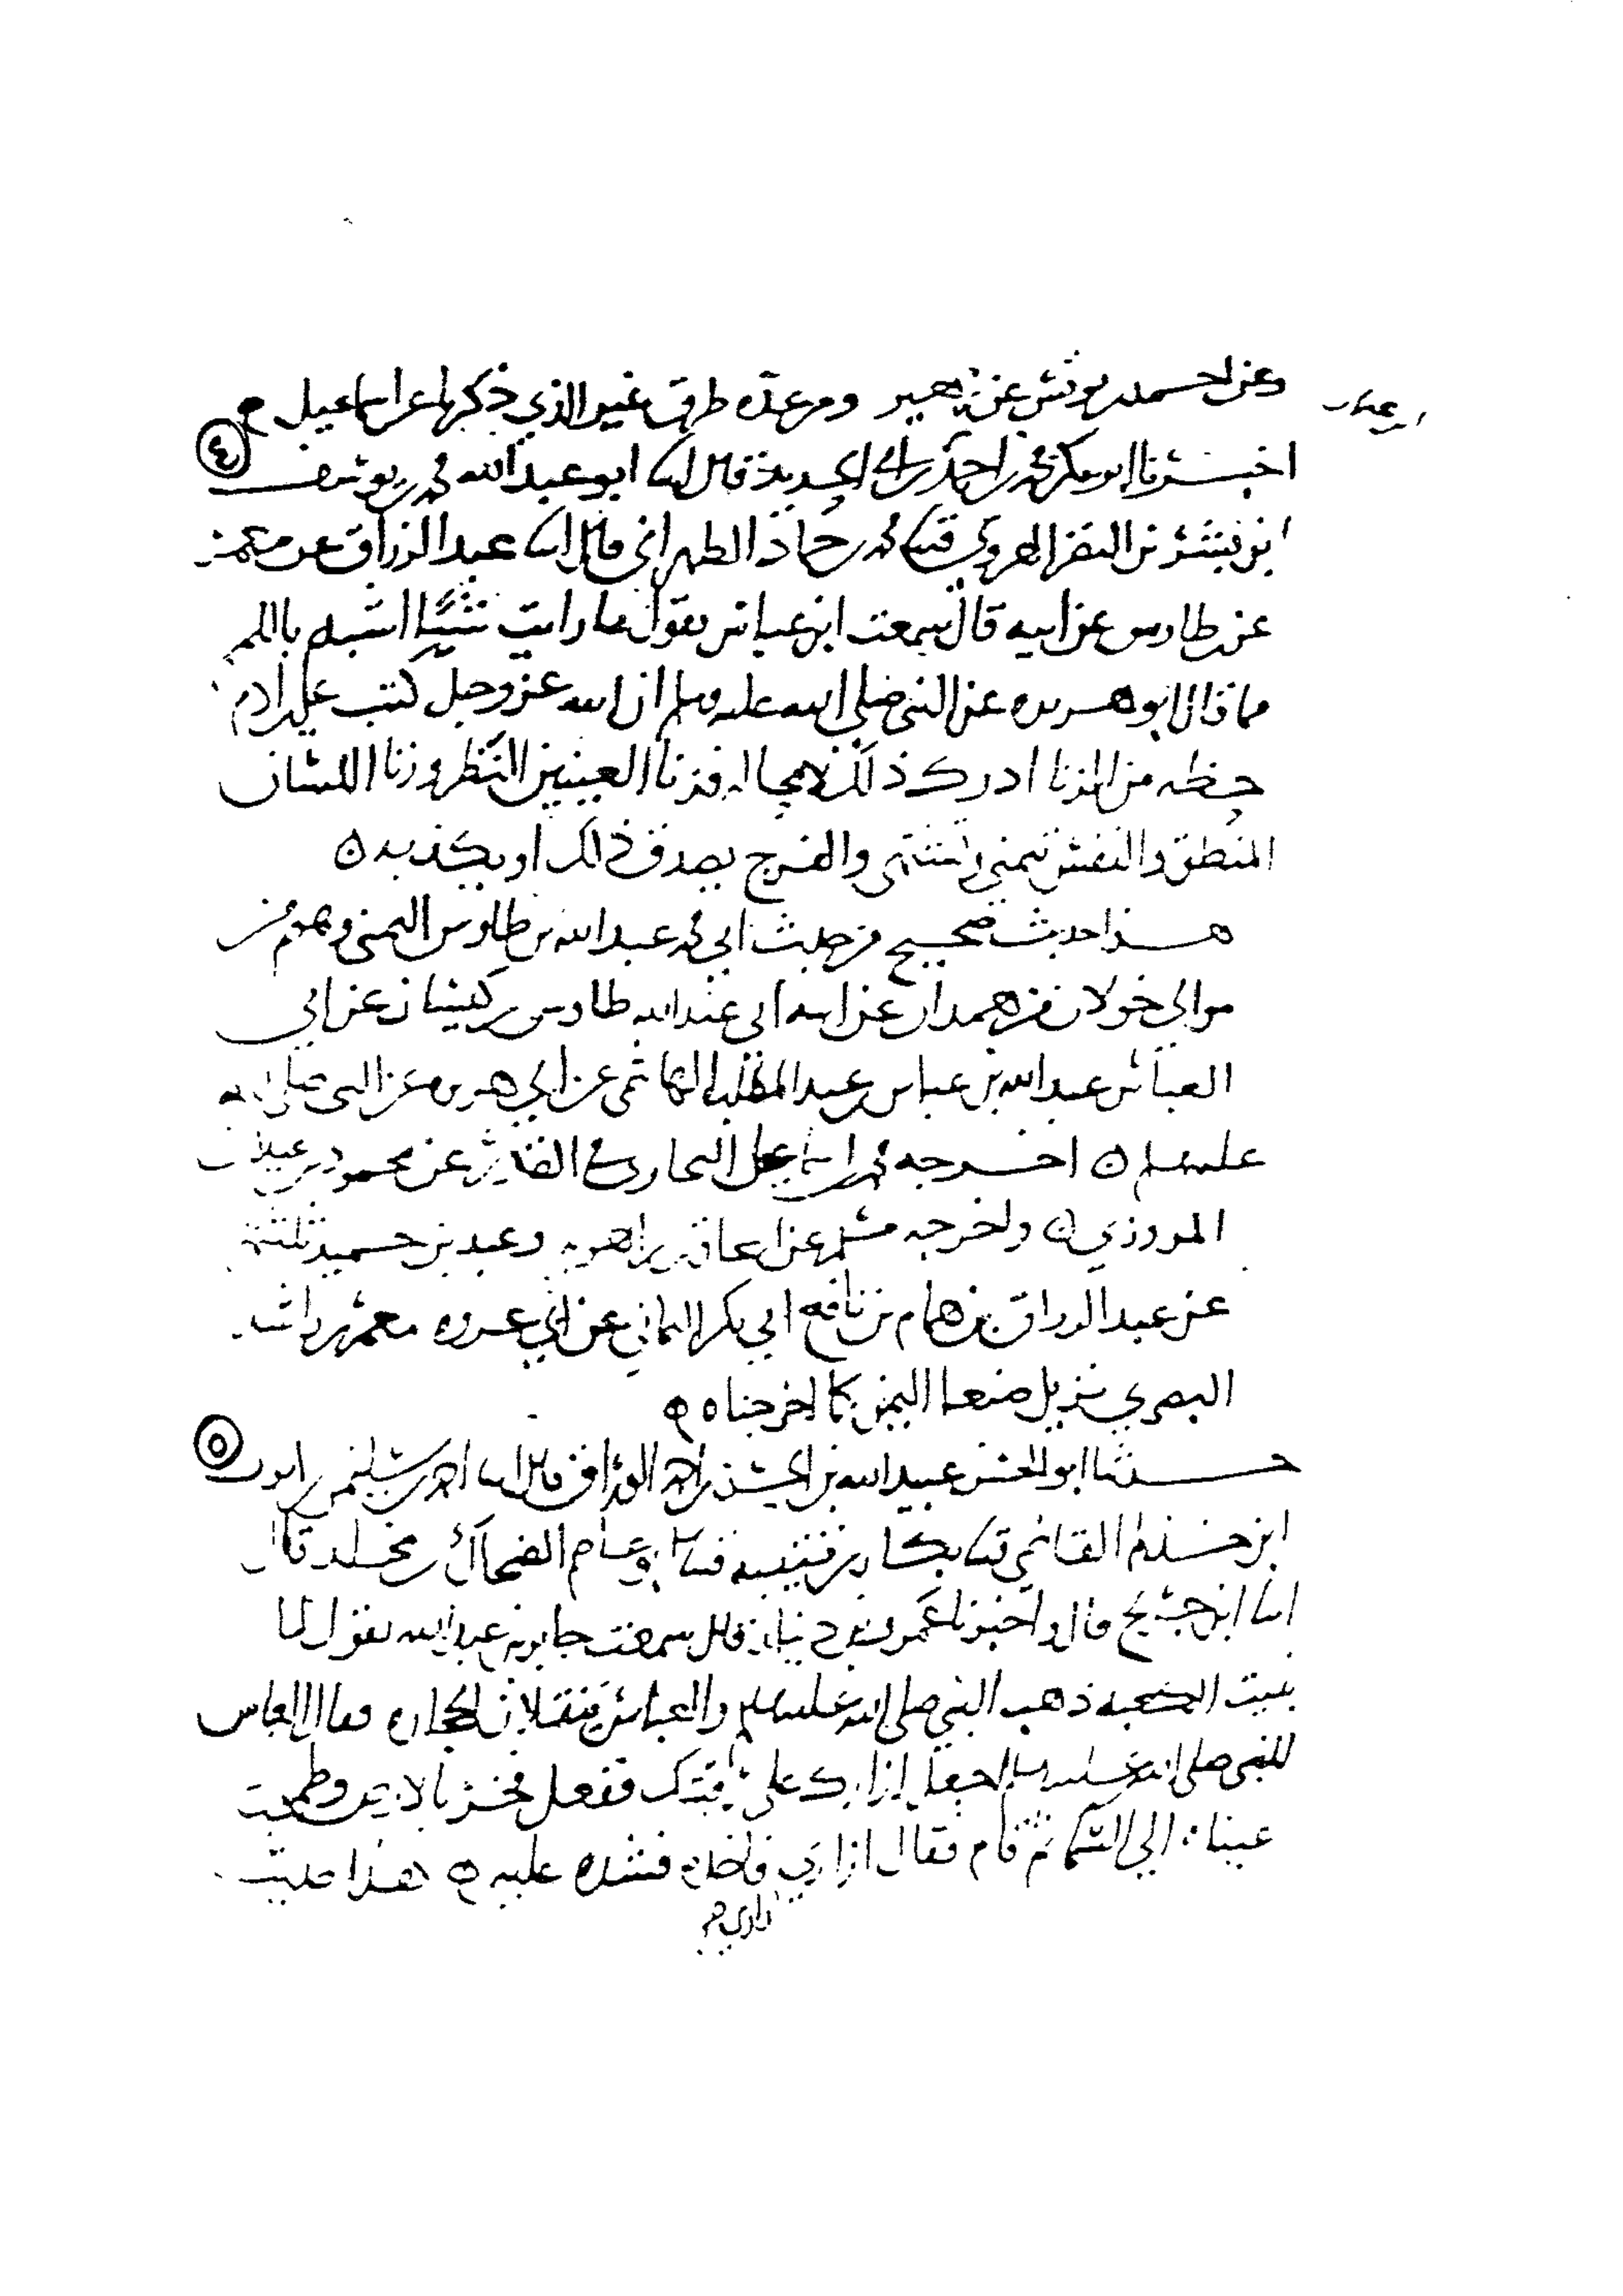 وعن احمد بن يونس عن زهير ومن عدة طرق غير الذي ذكرها عن اسماعيل
٤
اخبرنا ابو بكر محمد بن احمد بن ابي الحديد قال انا ابو عبد الله محمد بن يوسف
ابن بشر بن النضر الهروي قثنا محمد بن حماد الطهراني قال انا عبد الرزاق عن معمر
عن بن طاوس عن ابيه قال سمعت ابن عباس يقول ما رايت شيئا اشبه باللمم
مما قال ابو هريره عن النبي صلى الله عليه وسلم ان الله عز وجل كتب على بن ادم
حظه من الزنا ادرك ذلك لا محاله فزنا العينين النظر وزنا اللسان
المنطق والنفس تمنى وتشتهى والفرج يصدق ذلك او يكذبه ن
هذا حديث صحيح من حديث ابي محمد عبد الله بن طاوس اليمني وهو من
موالي خولان من همدان عن ابيه ابي عبد الله طاوس بن كيسان عن ابي
العباس عبد الله بن عباس بن عبد المطلب الهاشمي عن ابي هريره عن النبي صلى الله
عليه وسلم ن اخرجه محمد بن اسماعيل البخاري في القدر عن محمود بن غيلان
المروزي ن واخرجه مسلم عن اسحاق بن راهويه وعبد بن حميد
عن عبد الرزاق بن همام بن نافع ابي بكر اليماني عن ابي عروه معمر بن راشد
البصري نزيل صنعا اليمن كما اخرجناه ه
٥
حدثنا ابو الحسن عبيد الله بن الحسن بن احمد الوراق قال انا احمد بن سليمن بن ايوب
ابن حذلم القاضي قثنا بكار بن قتيبه قثنا ابو عاصم الضحاك بن مخلد قال
انا ابن جريج قال واخبرنا عمرو بن دينار قال سمعت جابر بن عبد الله يقول لما
بنيت الكعبه ذهب النبي صلى الله عليه وسلم والعباس ينقلان الحجاره فقال العباس
للنبي صلى الله عليه وسلم اجعل ازارك على رقبتك ففعل فخر بالارض وطمحت
عيناه الي السما ثم قام فقال ازاري فاخذه فشده عليه ه هذا حديث